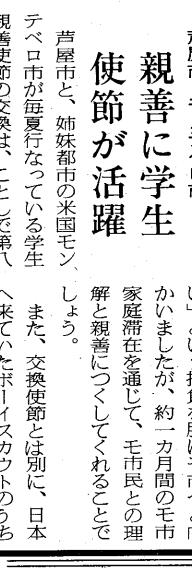 親善に学生
使節が活躍
芦屋市と、姉妹都市の米国モン
テベロ市が毎夏行なっている学生
親善使節の交換は、ことしで第八
かいましたが、約一カ月間のモ市
家庭滞在を通じて、モ市民との理
解と親善につくしてくれることで
しょう。
また、交換使節とは別に、日本
へ来ていたボーイスカウトのうち